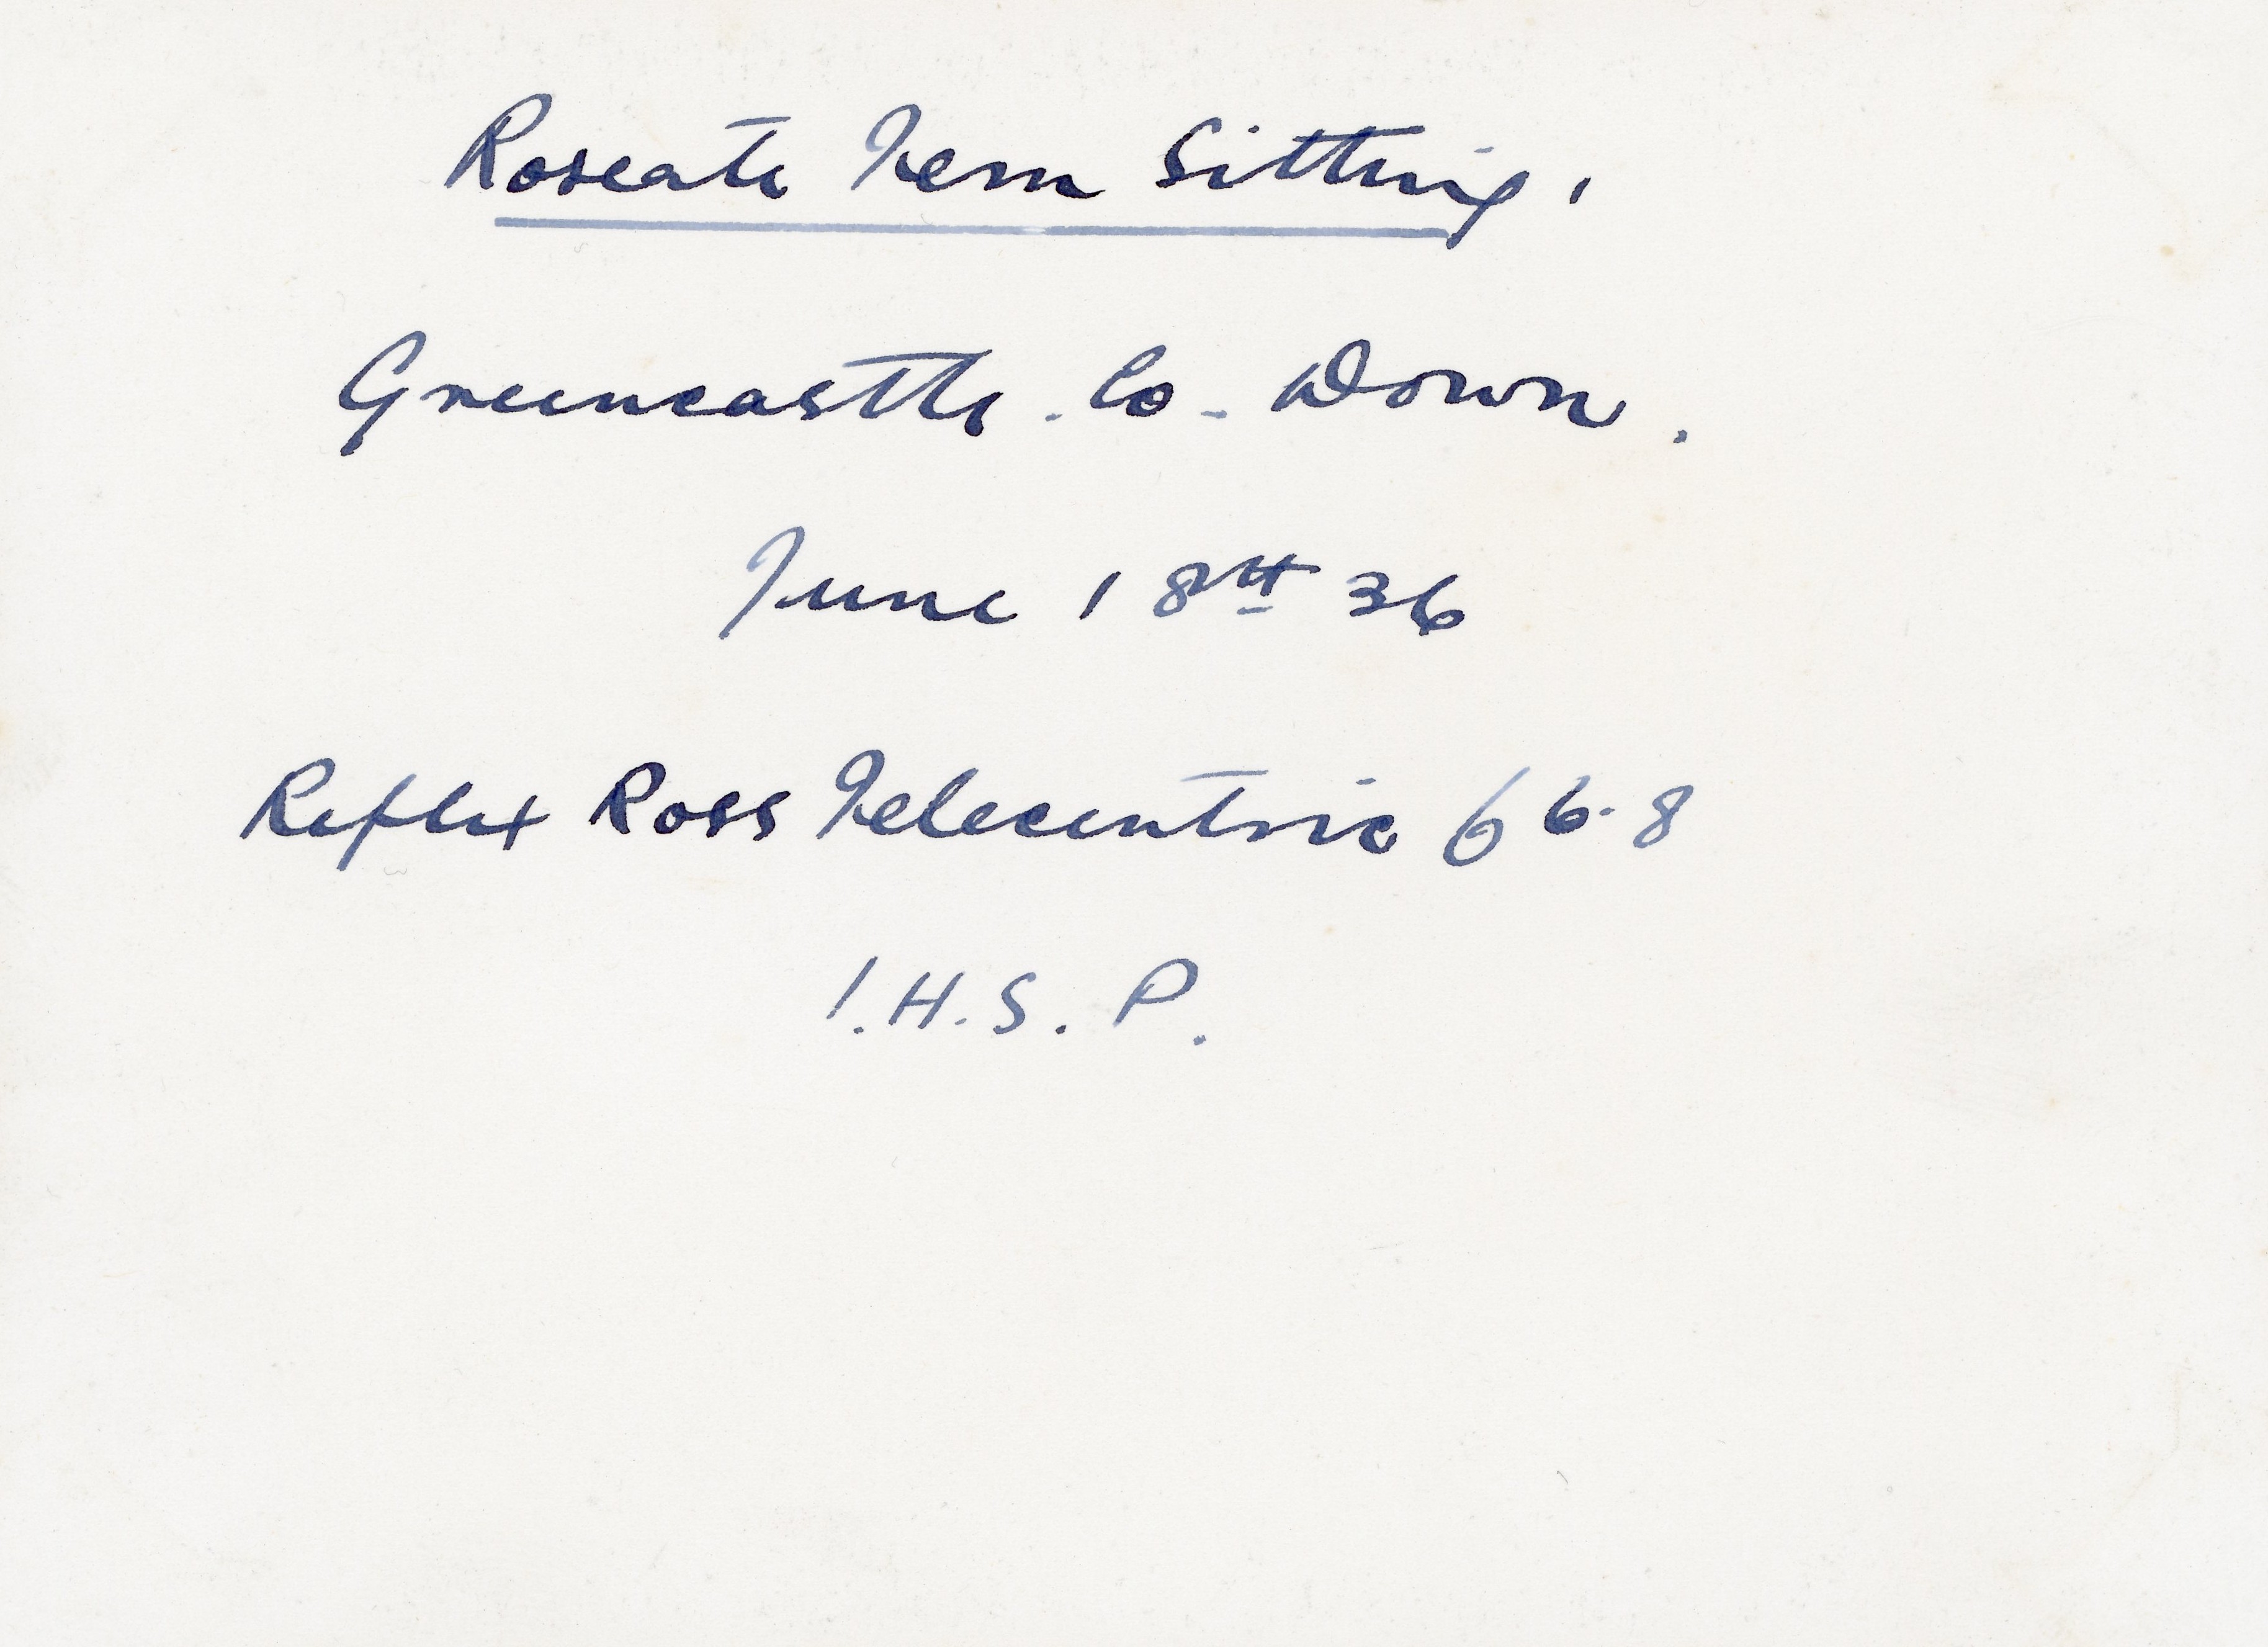 Roseate Tern Sitting.
Greencastle. Co. Down.
June 18th 36
Reflex Ross Telecentric f 6.8
I.H.S.P.